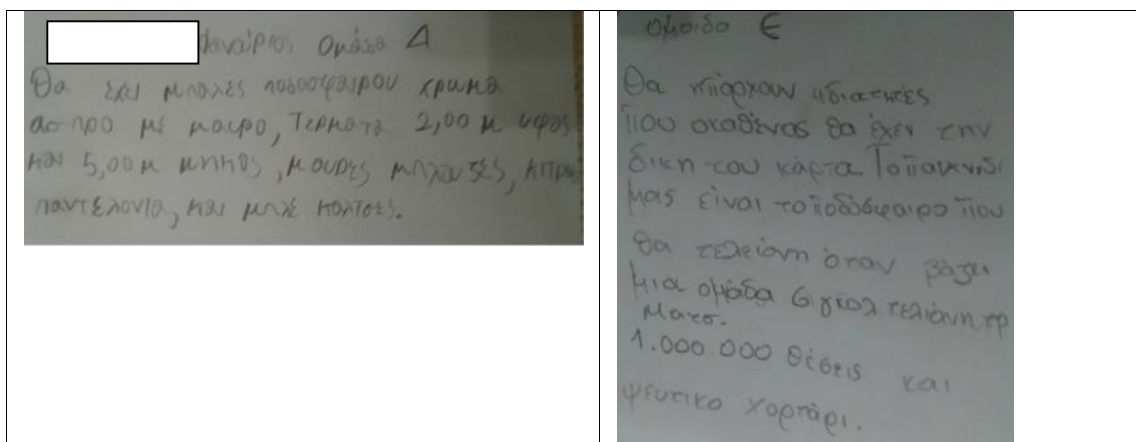 Παναύριος Ομάδα Δ
Θα έχει μπαλες ποδοσφαιρου χρωμα
ασπρο με μαυρο, Τερματα 2,00 μ υψος
και 5,00μ μηκος, μαυρες μπλουζες,
παντελονια, και μπλε καλτσες.
Ομοιδα Ε
Θα πάρχουν
που οκαθένας θα έχει την
δικη του κάρτα Το παιχνιδι
μας είναι το ποδόσφαιρο που
θα τελειόνη όταν βάζει
μια ομάδα 6 γκολ τελιόνη
ματσ.
1.000.000 θέσεις και
ψευτικο χορτάρι.